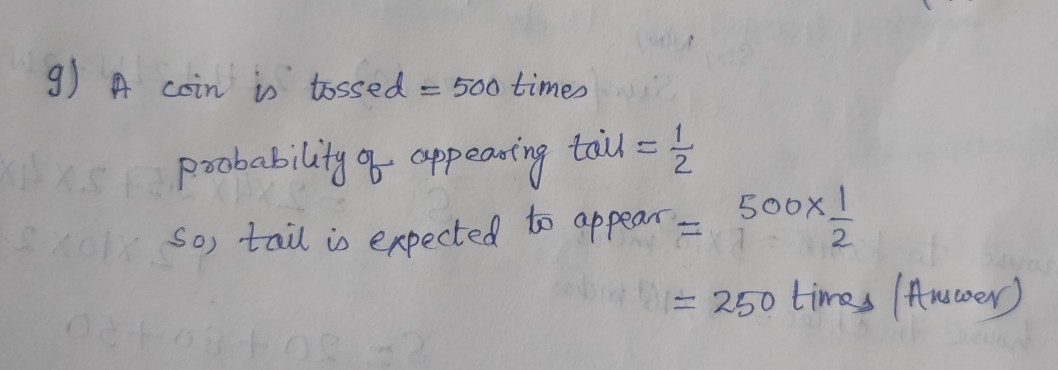 g) A coin is tossed = 500 times
probability of appearing tail = 1/2
so, tail is expected to appear = 500 × 1/2
= 250 times (Answer)